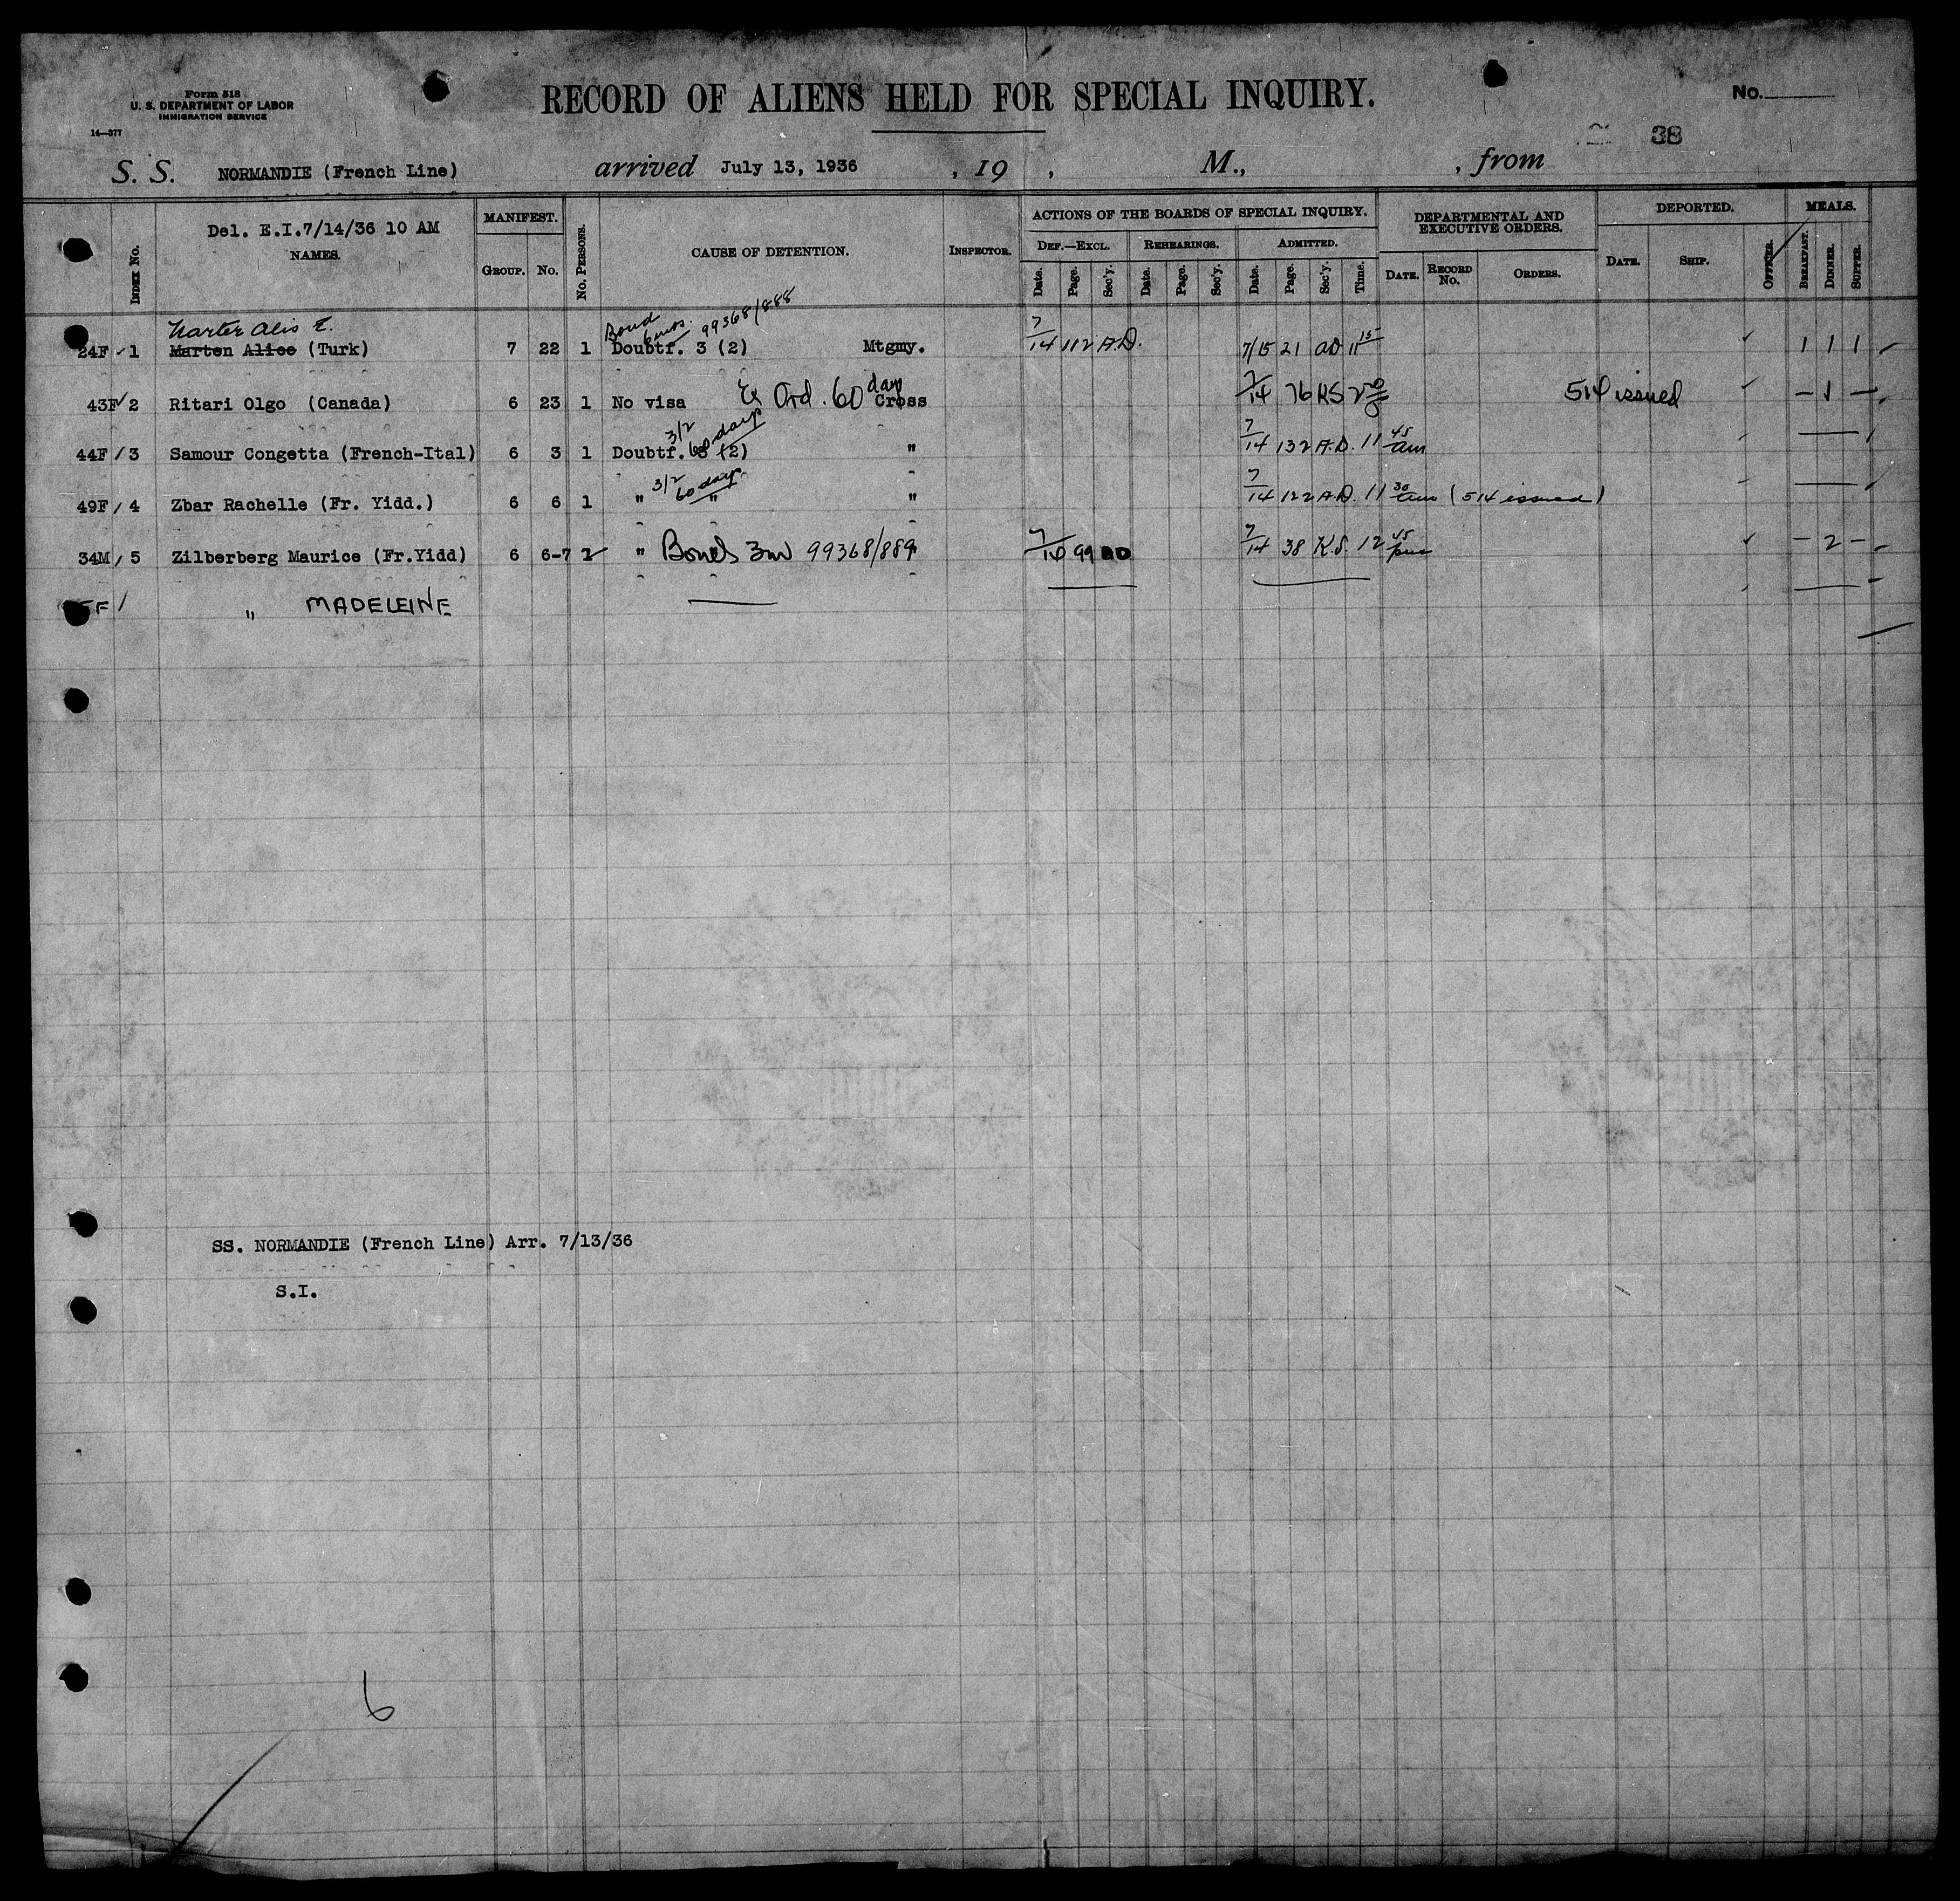 Form 518
U. S. DEPARTMENT OF LABOR
IMMIGRATION SERVICE
14—377
RECORD OF ALIENS HELD FOR SPECIAL INQUIRY.
No.
38
S. S. NORMANDIE (French Line) arrived July 13, 1936 , 19 , M., , from
Index No. Del. E.I.7/14/36 10 AM NAMES. MANIFEST. Group. No. No. Persons. CAUSE OF DETENTION. Inspector. ACTIONS OF THE BOARDS OF SPECIAL INQUIRY. Def.—Excl. Date. Page. Sec'y. Rehearings. Date. Page. Sec'y. Admitted. Date. Page. Sec'y. Time. DEPARTMENTAL AND EXECUTIVE ORDERS. Date. Record No. Orders. DEPORTED. Date. Ship. Officer. MEALS. Breakfast. Dinner. Supper.
Narter Alis E. Bond 6 mos. 99368/888
24F 1 Marten Alice (Turk) 7 22 1 Doubtf. 3 (2) Mtgmy. 7/14 112 A.D. 7/15 21 AD 11 15 1 1 1
43F 2 Ritari Olgo (Canada) 6 23 1 No visa Ex Ord. 60 days Cross 7/14 76 KS 514 issued — 1 —
3/2 60 days
44F 3 Samour Congetta (French-Ital) 6 3 1 Doubtf. (2) " 7/14 132 A.D. 11 45 am
3/2 60 days
49F 4 Zbar Rachelle (Fr. Yidd.) 6 6 1 " " " 7/14 122 A.D. 11 30 am (514 issued)
34M 5 Zilberberg Maurice (Fr.Yidd) 6 6-7 2 " Bond 3m 99368/889 " 7/14 99 AD 7/14 38 K.S. 12 45 pm — 2 —
F " MADELEINE
SS. NORMANDIE (French Line) Arr. 7/13/36
S.I.
6